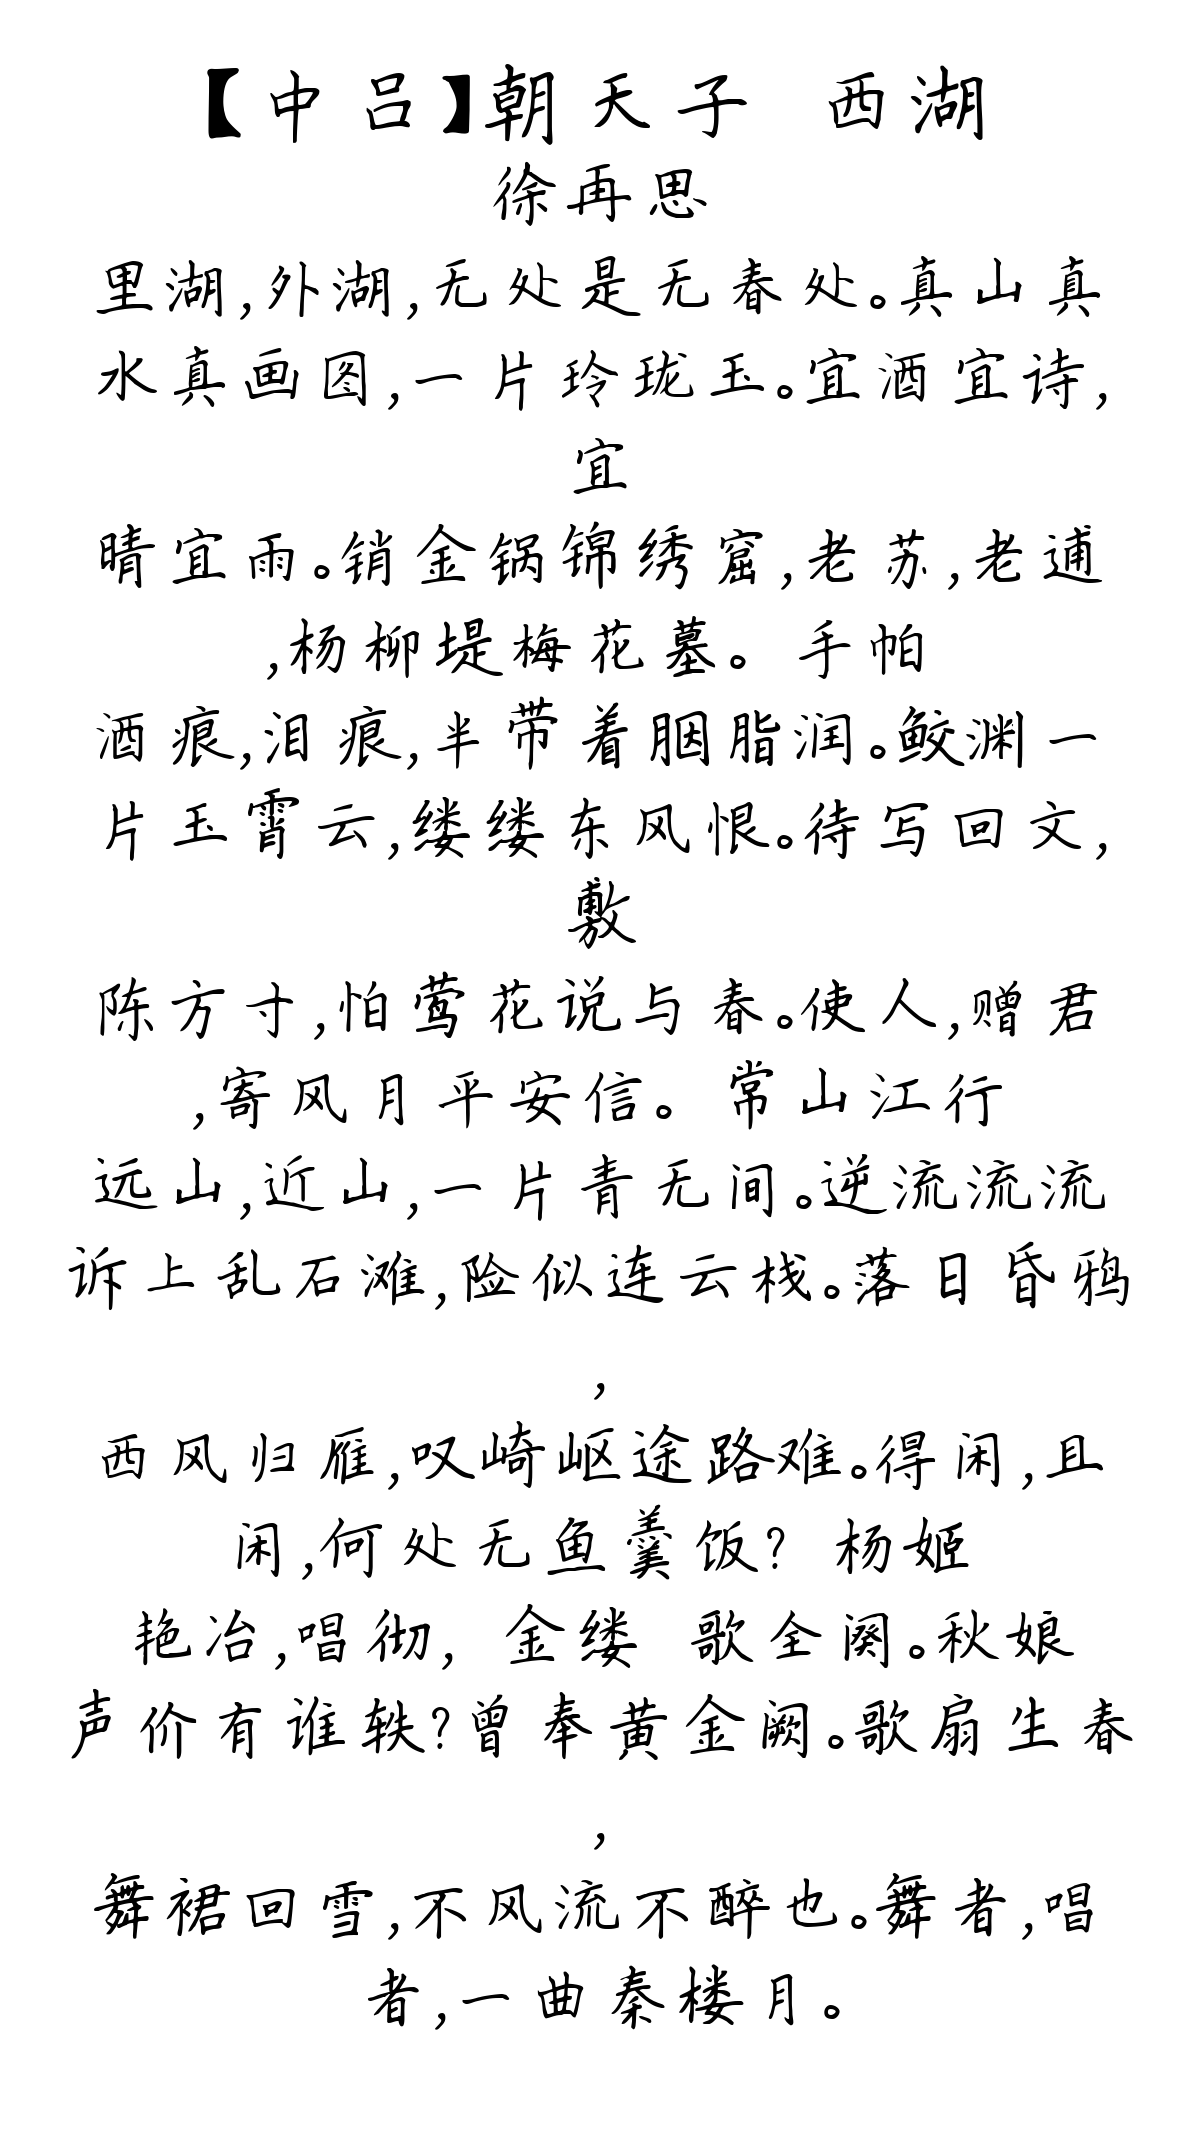 【中吕】朝天子 西湖
徐再思
里湖,外湖,无处是无春处。真山真
水真画图,一片玲珑玉。宜酒宜诗,
宜
晴宜雨。销金锅锦绣窟,老苏,老逋
,杨柳堤梅花墓。 手帕
酒痕,泪痕,半带着胭脂润。鲛渊一
片玉霄云,缕缕东风恨。待写回文,
敷
陈方寸,怕莺花说与春。使人,赠君
,寄风月平安信。 常山江行
远山,近山,一片青无间。逆流流流
诉上乱石滩,险似连云栈。落日昏鸦
,
西风归雁,叹崎岖途路难。得闲,且
闲,何处无鱼羹饭? 杨姬
艳冶,唱彻, 金缕 歌全阕。秋娘
声价有谁轶?曾奉黄金阙。歌扇生春
,
舞裙回雪,不风流不醉也。舞者,唱
者,一曲秦楼月。